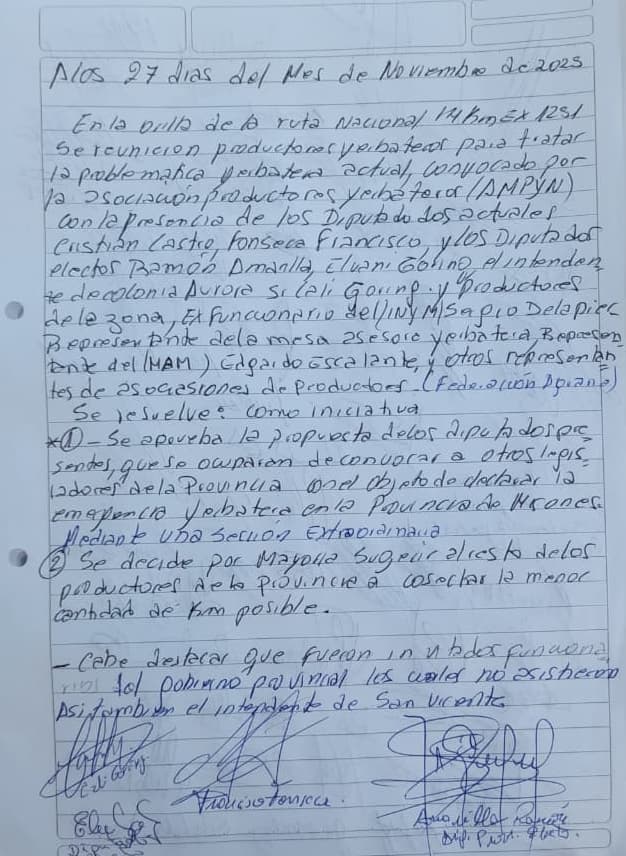 A los 27 dias del Mes de Noviembre de 2025
En la orilla de la ruta Nacional 14 Km Ex 1251
se reunieron productores yerbateros para tratar
la problematica yerbatera actual, convocado por
la asociación productores yerbateros (AMPYN)
con la presencia de los Diputados actuales
Cristian Castro, Fonseca Francisco, y los Diputados
electos Ramón Amarilla, Eluani Gobino el intenden
te de colonia Aurora sr. Cali Goring. y productores
de la zona, Ex funcionario del INYM Sapio Delapiec
Representante de la mesa asesora yerbatera, Represen
tante del (MAM) Edgardo Escalante, y otros representan
tes de asociasiones de Productores - (Federación Agraria)
Se resuelve: como iniciativa
*① - Se aprueba la propuesta de los diputados pre
sentes, que se ocuparan de convocar a otros legis
ladores de la Provincia con el objeto de declarar la
emergencia yerbatera en la Provincia de Misiones.
Mediante una Sección Extraordinaria
② Se decide por Mayoria Sugerir al resto de los
productores de la provincia a cosechar la menor
cantidad de Km posible.
- Cabe destacar que fueron invitados funciona
rios del gobierno provincial los cuales no asistieron
Asi tambien el intendente de San Vicente
Cali Goring
Francisco Fonseca.
Amarilla Ramón
Dip. Prov. Electo.